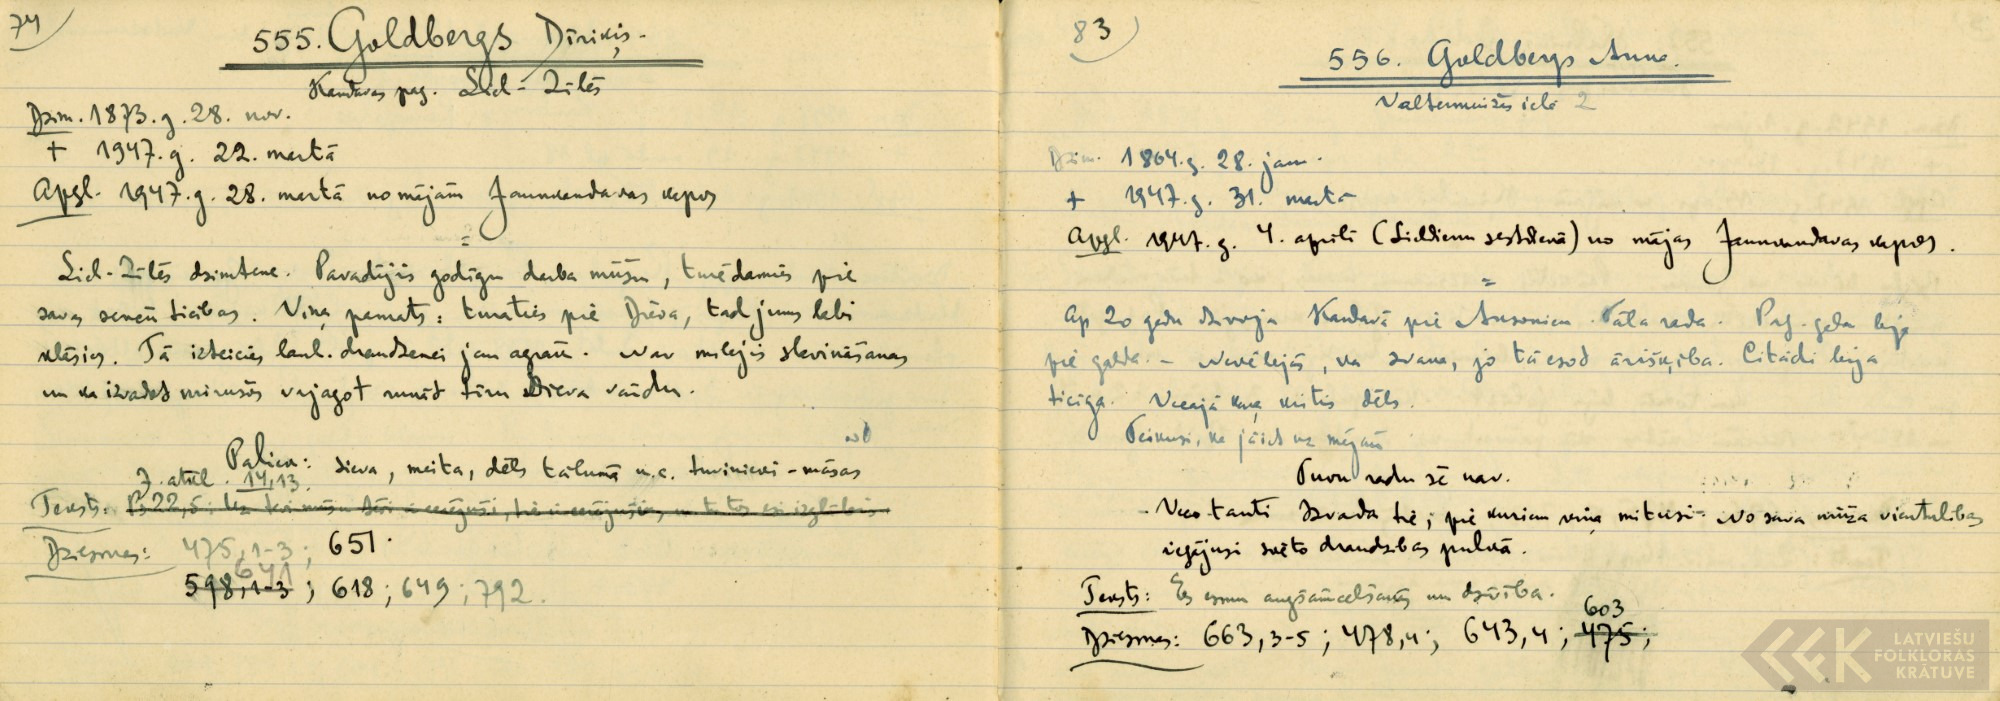 74
555. Goldbergs Dīriķis.
Kandavas pag. Liel-Zīlēs
Dzim. 1873. g. 28. nov.
+ 1947. g. 22. martā
Apgl. 1947. g. 28. martā no mājām Jaunkandavas kapos
=
Liel-Zīlēs dzimtene. Pavadījis godīgu darba mūžu, turēdamies pie
savas senču ticības. Viņa pamats: turaties pie Dieva, tad jums labi
klāsies. Tā izteicies lauk. draudzenei jau agrāk. Nav mīlējis slavināšanas
un ka izvadot mirušos vajagot runāt tīru Dieva vārdu.
Paliek: sieva, meita, dēls tālumā u.c. tuvinieki - māsas
J. atkl. 14,13.
Teksts: Ps 22,5:
Dziesmas: 475,1-3; 651.
641
598,1-3; 618; 649; 792.
83
556. Goldbergs Anna.
Valtermuižas ielā 2
Dzim. 1864. g. 28. jan.
+ 1947. g. 31. martā
Apgl. 1947. g. 4. aprīlī (Lieldienu sestdienā) no mājas Jaunkandavas kapos.
=
Ap 20 gadu dzīvoja Kandavā pie Ansoniem. Tāla rada. Pag. gada bija
pie galda. - Nevēlējās, ka zvana, jo tā esot ārišķība. Citādi bija
ticīga. Vecajā karā kritis dēls.
Teikusi, ka jāiet uz mājām
Tuvu radu šē nav.
Veco tanti izvada tie, pie kuriem viņa mitusi. No sava mūža vientulības
iegājusi svēto draudzības pulkā.
Teksts: Es esmu augšāmcelšanās un dzīvība.
603
Dziesmas: 663,3-5; 478,4; 643,4; 475;
LATVIEŠU
FOLKLORAS
KRĀTUVE